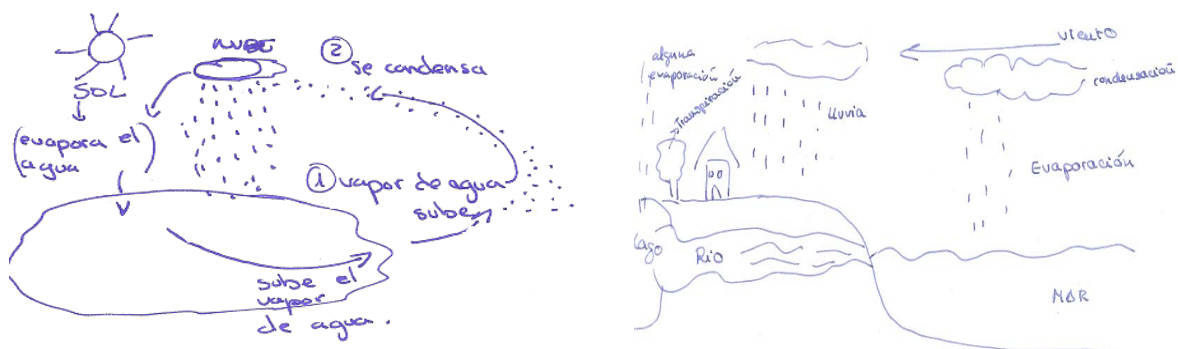 SOL
NUBE
(evapora el
agua)
②
se condensa
① vapor de agua
sube
sube el
vapor
de agua.
alguna
evaporación
transpiración
lluvia
viento
condensación
Evaporación
Lago
Rio
MAR